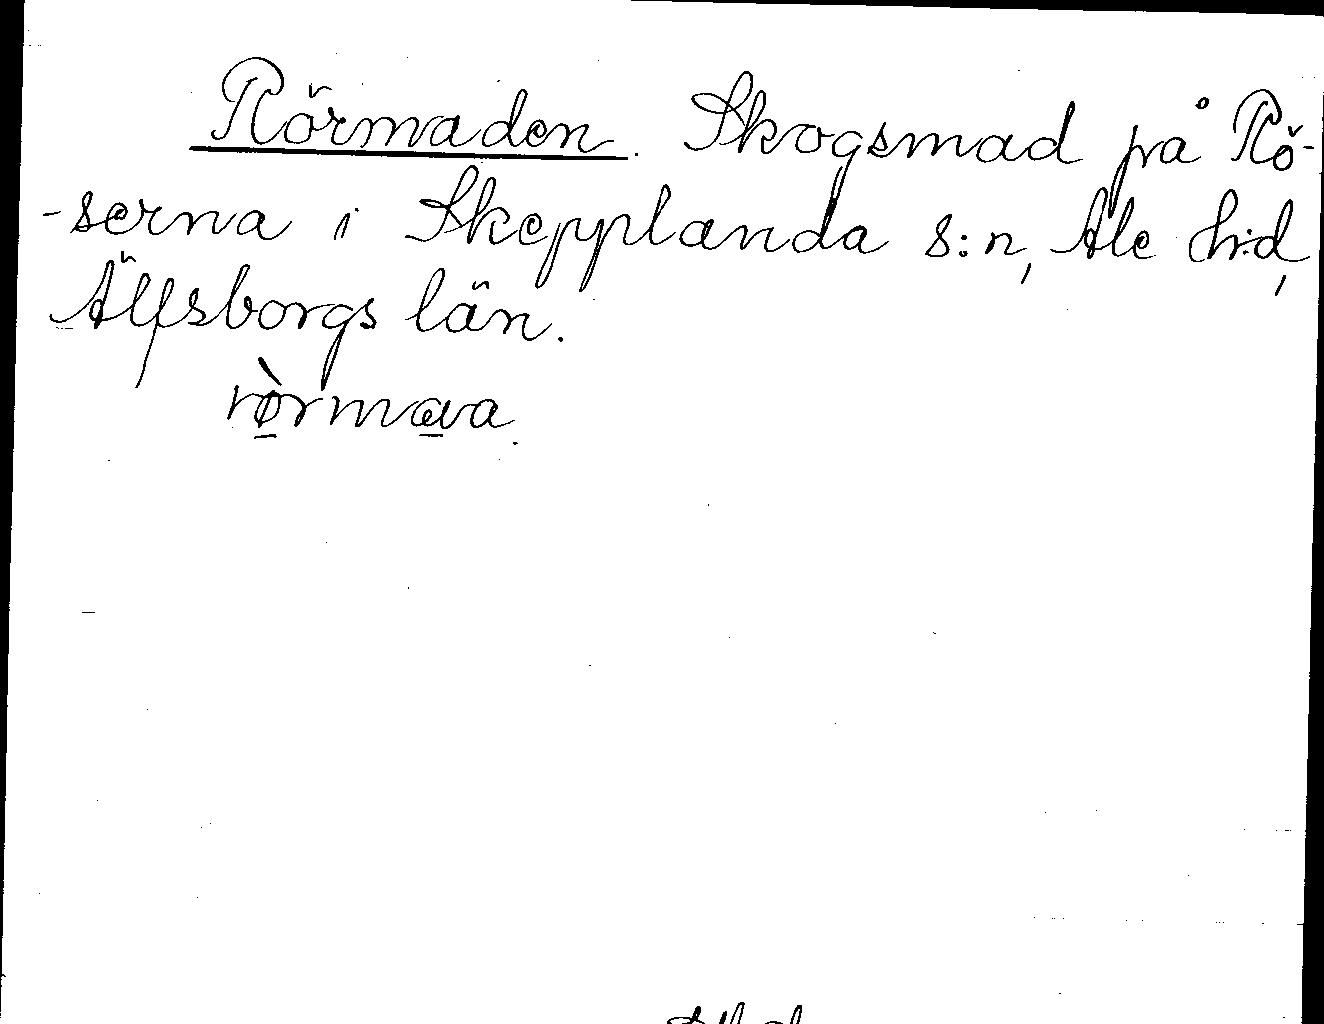 Rörmaden. Skogsmad på Rö-
-serna i Skepplanda s:n, Ale h:d,
Älfsborgs län.
rø̀rmava.